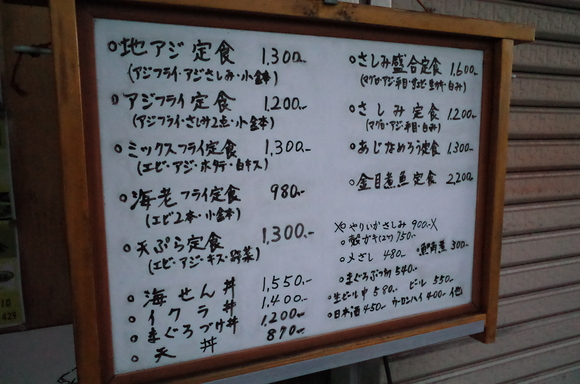 ○地アジ定食 1,300-
(アジフライ・アジさしみ・小金本)
○アジフライ定食 1,200-
(アジフライ・さしみ2点・小金本)
○ミックスフライ定食 1,300-
(エビ・アジ・ホタテ・白キス)
○海老フライ定食 980-
(エビ2本・小金本)
○天ぷら定食 1,300-
(エビ・アジ・キス・野菜)
○海せん丼 1,550-
○イクラ丼 1,400-
○まぐろづけ丼 1,200-
○天丼 870-
○さしみ盛合定食 1,600-
○さしみ定食 1,200-
(マグロ・アジ・平目・白み)
○あじなめろう定食 1,300-
○金目煮魚定食 2,200-
やりいかさしみ 900-
○殻ガキ(2ケ) 750-
○メざし 480-
300-
○まぐろぶつ切 540-
○生ビール中 580- ビール 550-
○日本酒 450- ウーロンハイ 400- 他